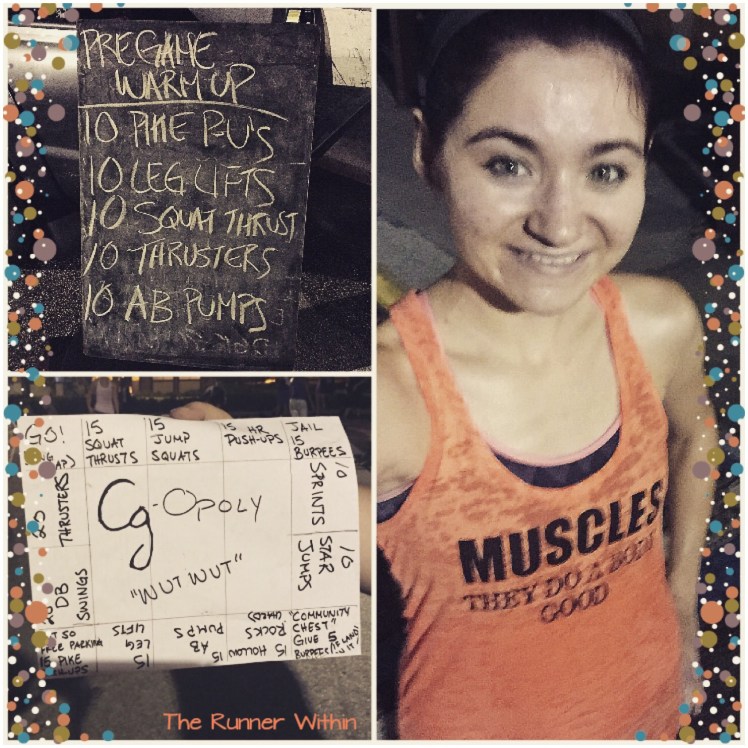 PREGAME
WARM UP
10 PIKE P-U'S
10 LEG LIFTS
10 SQUAT THRUST
10 THRUSTERS
10 AB PUMPS
MUSCLES
THEY DO A BODY
GOOD
GO!
15
SQUAT
THRUSTS
15
JUMP
SQUATS
15 HR
PUSH-UPS
JAIL
15
BURPEES
10
SPRINTS
10
STAR
JUMPS
"COMMUNITY
CHEST"
GIVE 5
15 HOLLOW
ROCKS
15
AB
PUMPS
15
LEG
LIFTS
SO
PARKING
15 PIKE
DB
SWINGS
THRUSTERS
Cg-OPOLY
"WUT WUT"
The Runner Within